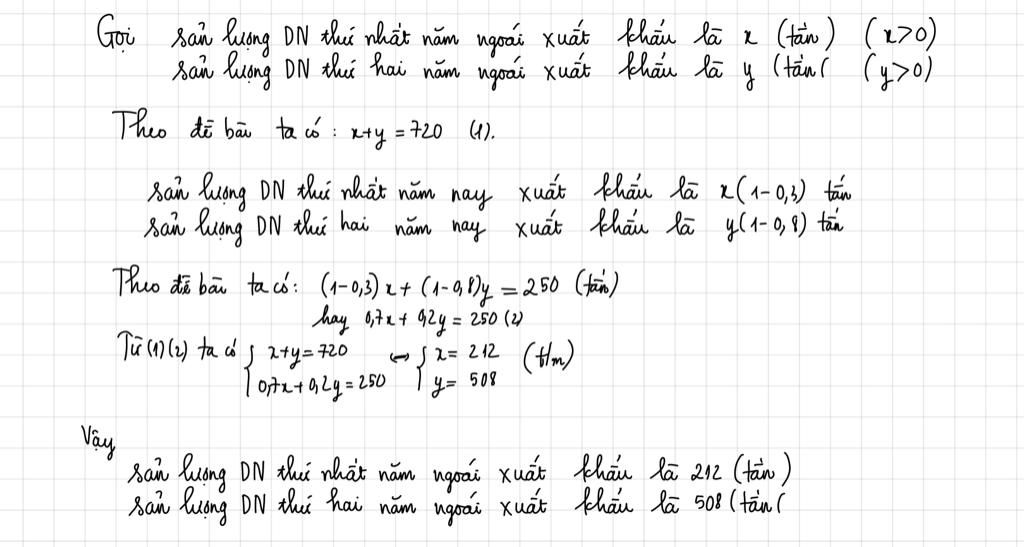 Gọi sản lượng DN thứ nhất năm ngoái xuất khẩu là x (tấn) (x>0)
sản lượng DN thứ hai năm ngoái xuất khẩu là y (tấn( (y>0)
Theo đề bài ta có : x+y = 720 (1).
sản lượng DN thứ nhất năm nay xuất khẩu là x(1-0,3) tấn
sản lượng DN thứ hai năm nay xuất khẩu là y(1-0,8) tấn
Theo đề bài ta có: (1-0,3)x + (1-0,8)y = 250 (tấn)
hay 0,7x + 0,2y = 250 (2)
Từ (1)(2) ta có { x+y = 720 ↔ { x = 212 (t/m)
0,7x + 0,2y = 250 y = 508
Vậy
sản lượng DN thứ nhất năm ngoái xuất khẩu là 212 (tấn)
sản lượng DN thứ hai năm ngoái xuất khẩu là 508 (tấn(